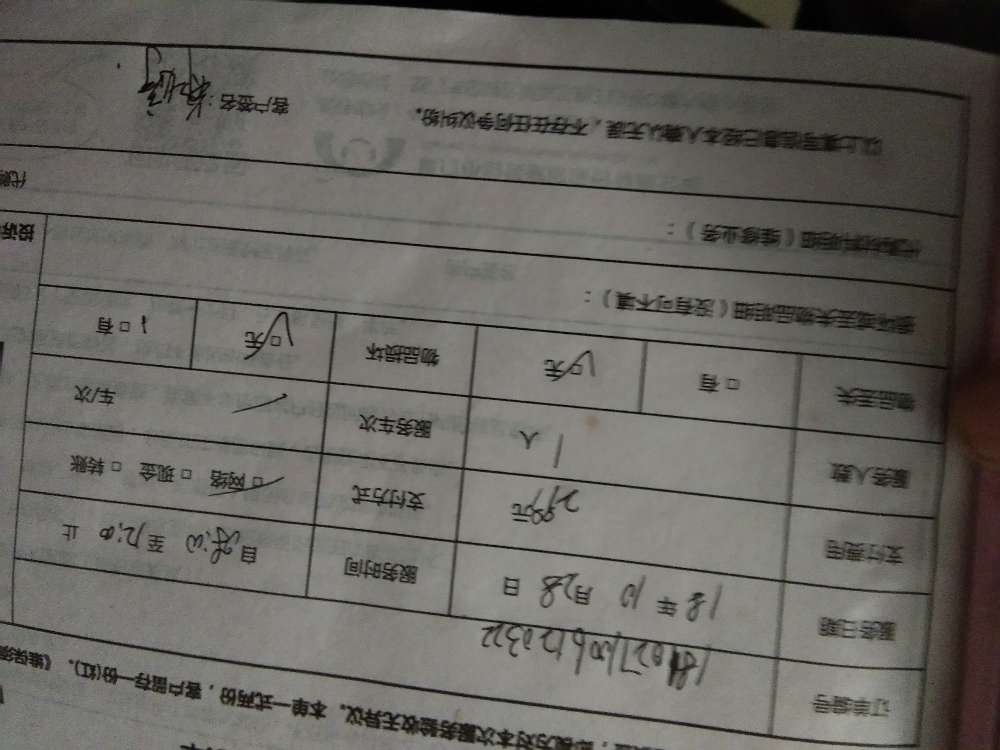 对本次服务验收无异议。本单一式两份，客户留存一份(红)。《维保须
订单编号 1810271006120322
服务日期 18年10月28日 服务时间 自8:00至12:00止
支付费用 299元 支付方式 □网络 □现金 □转账
服务人数 1人 服务车次 车/次
物品丢失 □有 □无 物品损坏 □无 □有
损坏或丢失物品明细（没有可不填）： 投诉
代购材料明细（维修业务）： 代购
以上填写信息已经本人确认无误，不存在任何争议纠纷。 客户签名：